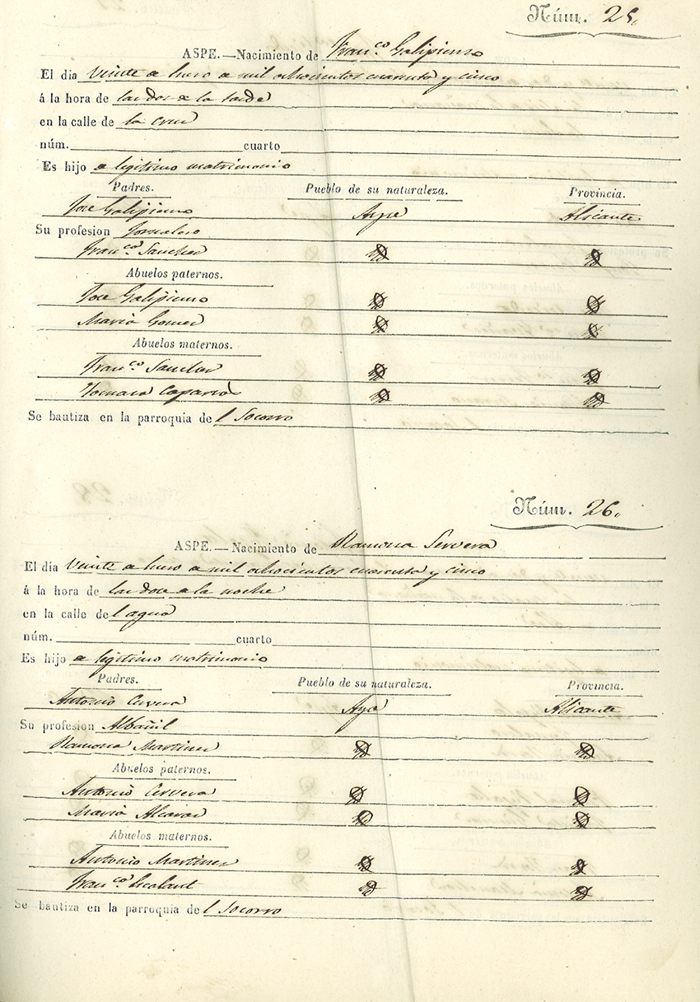 Núm. 25.
ASPE.—Nacimiento de Fran.co Galipienso
El dia veinte de Enero de mil ochocientos cuarenta y cinco
á la hora de las dos de la tarde
en la calle de la Cruz
núm. cuarto
Es hijo de legitimo matrimonio
Padres. Pueblo de su naturaleza. Provincia.
Jose Galipienso Aspe Alicante
Su profesion Jornalero
Fran.ca Sanchez
Abuelos paternos.
Jose Galipienso
Maria Gomez
Abuelos maternos.
Fran.co Sanchez
Tomasa
Se bautiza en la parroquia del Socorro
Núm. 26.
ASPE.—Nacimiento de Ramona Servera
El dia veinte de Enero de mil ochocientos cuarenta y cinco
á la hora de las doce de la noche
en la calle del agua
núm. cuarto
Es hijo de legitimo matrimonio
Padres. Pueblo de su naturaleza. Provincia.
Antonio Cervera Aspe Alicante
Su profesion Albañil
Ramona Martinez
Abuelos paternos.
Antonio Cervera
Maria Alcaraz
Abuelos maternos.
Antonio Martinez
Fran.ca
Se bautiza en la parroquia del Socorro